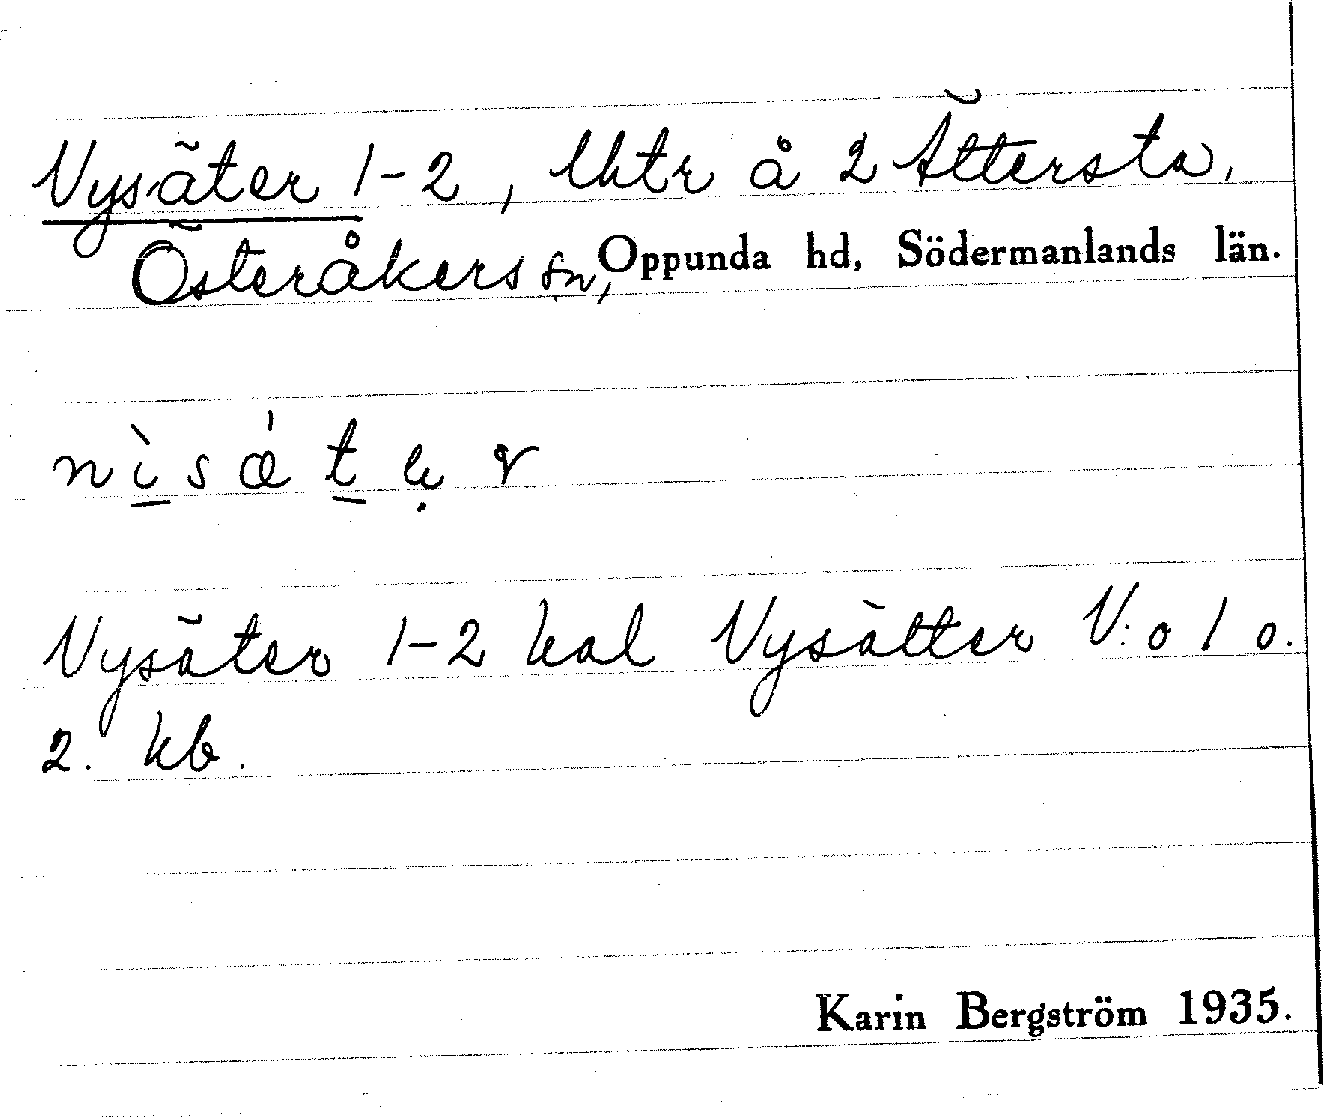 Nysäter 1-2, lhtr å 2 Ättersta,
Österåkers sn, Oppunda hd, Södermanlands län.
Nysäter 1-2 kal Nysätter N:o 1 o.
2. kb.
Karin Bergström 1935.